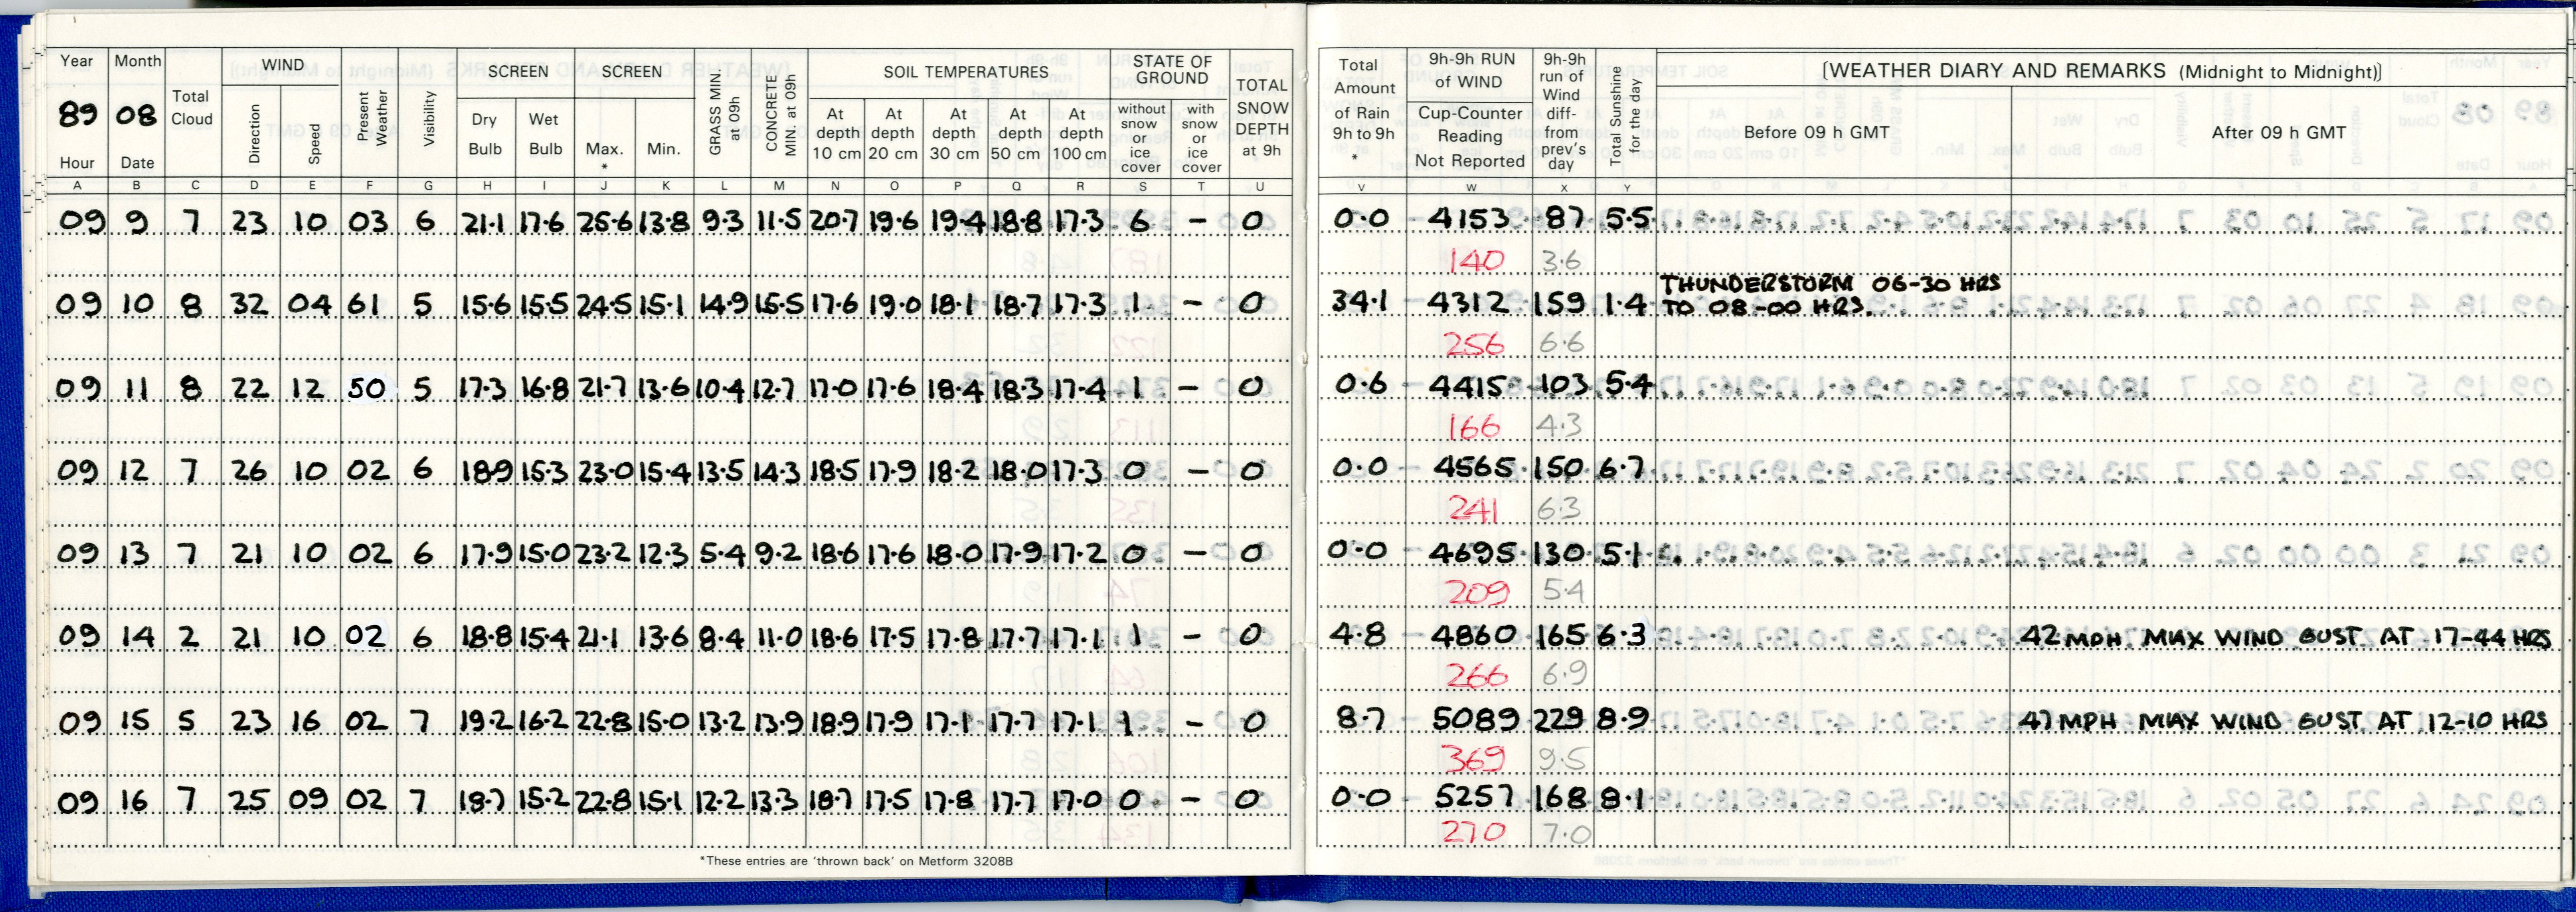 Year Month Total Cloud WIND Present Weather Visibility SCREEN SCREEN GRASS MIN. at 09h CONCRETE MIN. at 09h SOIL TEMPERATURES STATE OF GROUND TOTAL SNOW DEPTH at 9h Total Amount of Rain 9h to 9h * 9h-9h RUN of WIND 9h-9h run of Wind diff- from prev's day Total Sunshine for the day [WEATHER DIARY AND REMARKS (Midnight to Midnight)]
89 08 Direction Speed Dry Bulb Wet Bulb Max. * Min. At depth 10 cm At depth 20 cm At depth 30 cm At depth 50 cm At depth 100 cm without snow or ice cover with snow or ice cover Cup-Counter Reading Not Reported Before 09 h GMT After 09 h GMT
Hour Date
A B C D E F G H I J K L M N O P Q R S T U V W X Y
09 9 7 23 10 03 6 21.1 17.6 25.6 13.8 9.3 11.5 20.7 19.6 19.4 18.8 17.3 6 – 0 0.0 4153 87 5.5
140 3.6
09 10 8 32 04 61 5 15.6 15.5 24.5 15.1 14.9 15.5 17.6 19.0 18.1 18.7 17.3 1 – 0 34.1 4312 159 1.4 THUNDERSTORM 06-30 HRS
TO 08-00 HRS.
256 6.6
09 11 8 22 12 50 5 17.3 16.8 21.7 13.6 10.4 12.7 17.0 17.6 18.4 18.3 17.4 1 – 0 0.6 4415 103 5.4
166 4.3
09 12 7 26 10 02 6 18.9 15.3 23.0 15.4 13.5 14.3 18.5 17.9 18.2 18.0 17.3 0 – 0 0.0 4565 150 6.7
241 6.3
09 13 7 21 10 02 6 17.9 15.0 23.2 12.3 5.4 9.2 18.6 17.6 18.0 17.9 17.2 0 – 0 0.0 4695 130 5.1
209 5.4
09 14 2 21 10 02 6 18.8 15.4 21.1 13.6 8.4 11.0 18.6 17.5 17.8 17.7 17.1 1 – 0 4.8 4860 165 6.3 42 MPH MAX WIND GUST AT 17-44 HRS
266 6.9
09 15 5 23 16 02 7 19.2 16.2 22.8 15.0 13.2 13.9 18.9 17.9 17.1 17.7 17.1 1 – 0 8.7 5089 229 8.9 47 MPH MAX WIND GUST AT 12-10 HRS
369 9.5
09 16 7 25 09 02 7 18.7 15.2 22.8 15.1 12.2 13.3 18.7 17.5 17.8 17.7 17.0 0 – 0 0.0 5257 168 8.1
270 7.0
*These entries are 'thrown back' on Metform 3208B